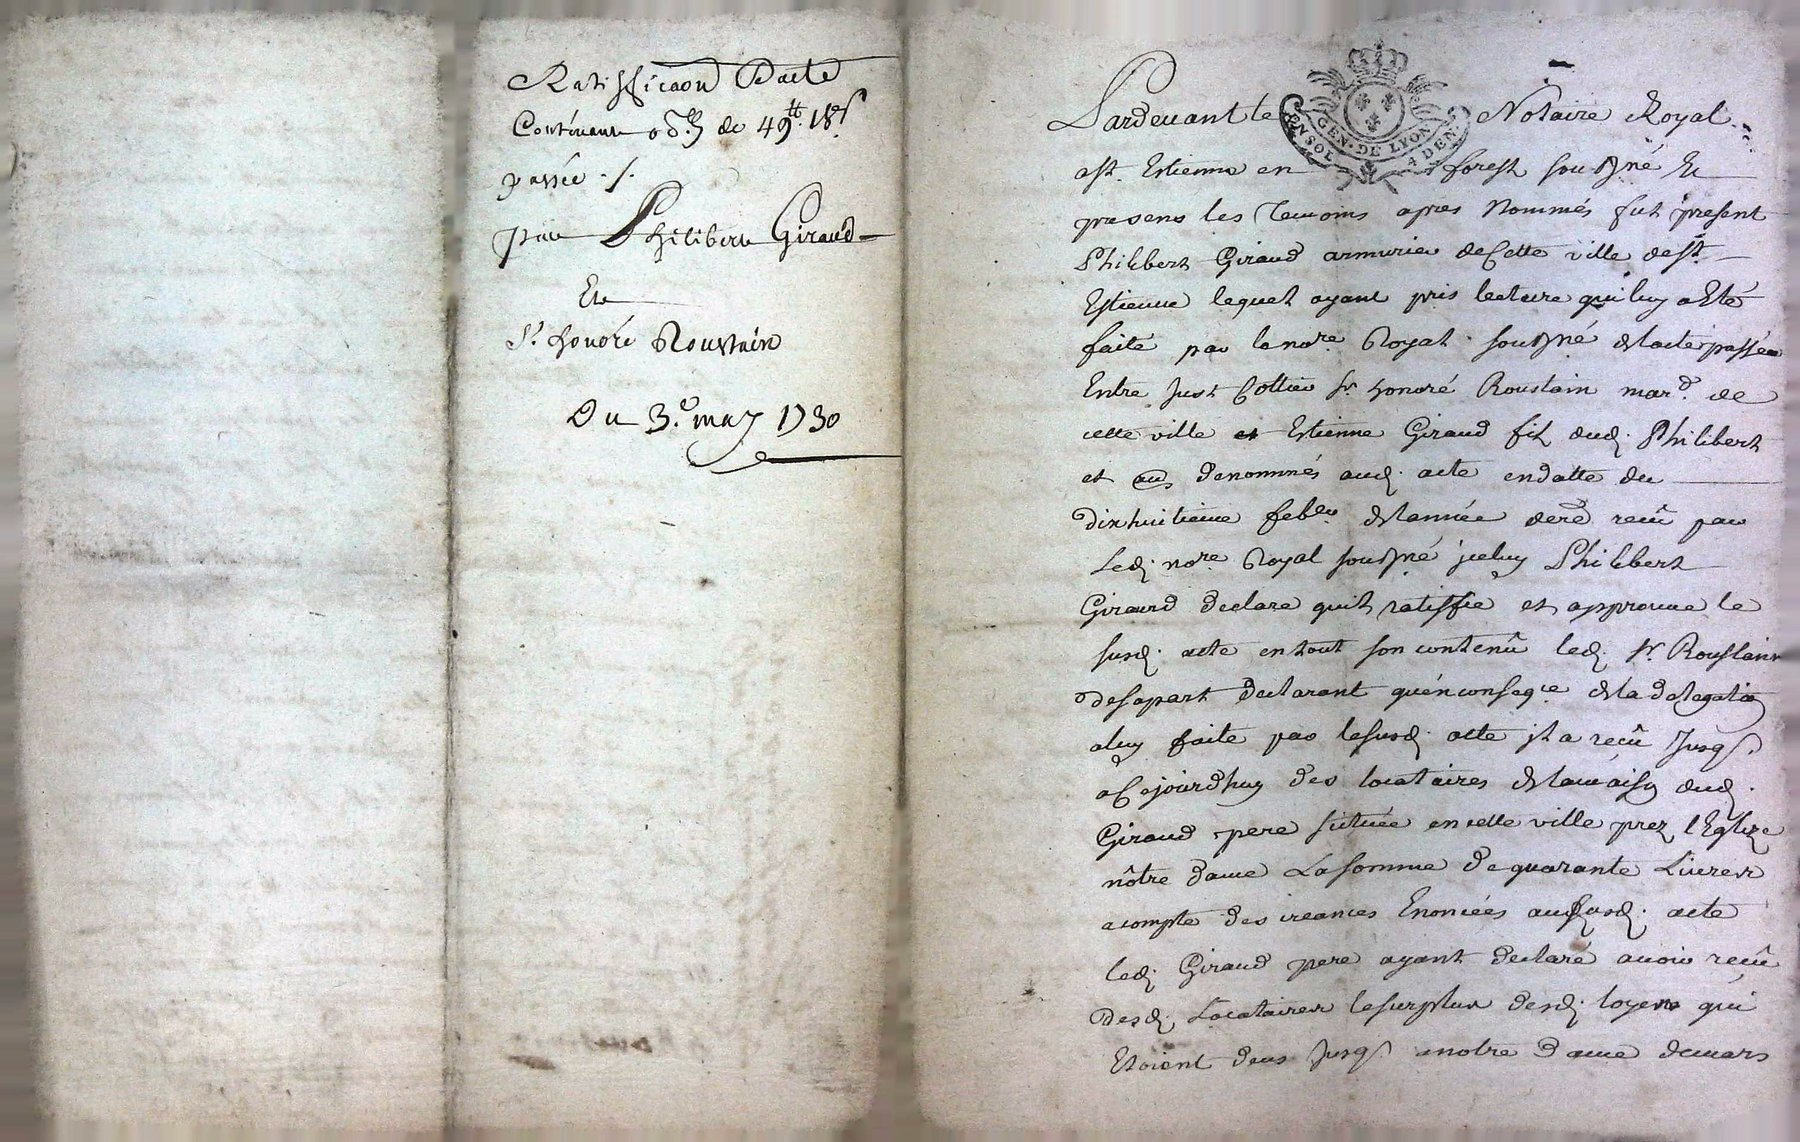 Ratifficaon Dacte
Contenant od.on de 49₶ 18s
passée ./.
par Philibert Giraud
Et
Sr. honoré Roustain
Du 3.e may 1730
Pardevant le Notaire Royal
GEN. DE LYON
UN SOL 4 DEN.
a St. Estienne en forest sousigné Et
presens les Temoins apres Nommés fut present
Philibert Giraud armurier de Cette ville de St.
Estienne lequel ayant pris lecture qui luy a Eté
faite par le nore. Royal sousigné de lacte passée
Entre Just Collier Sr. honoré Roustain mard. de
cette ville et Estienne Giraud fils dud. Philibert
et denommés aud. acte en datte du
Dixhuitieme febvr. de lannée derre. reçû par
Led. nore. Royal sousigné jceluy Philibert
Giraud declare quil ratiffie et approuve le
susd. acte en tout son contenû led. Sr. Roustain
de sa part declarant quén conseqce. de la delegation
a luy faite par le susd. acte jl a reçû Jusqs.
a Cejourdhuy des locataires de la maison dud.
Giraud pere scituée en cette ville prez l'Eglize
nôtre dame La somme de quarante Livres
acompte des creances Enoncées au susd. acte
led. Giraud pere ayant declaré avoir reçû
Desd. Locataires le surplus desd. loyers qui
Etoient deus Jusqs. a notre Dame de mars